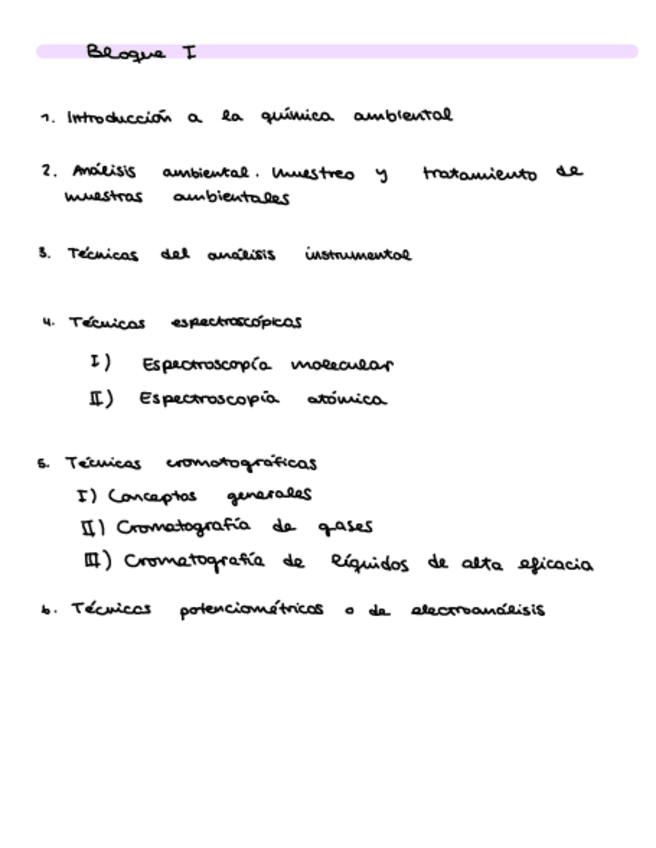 Bloque I
1. Introducción a la química ambiental
2. Análisis ambiental. Muestreo y tratamiento de
muestras ambientales
3. Técnicas del análisis instrumental
4. Técnicas espectroscópicas
I) Espectroscopía molecular
II) Espectroscopía atómica
5. Técnicas cromatográficas
I) Conceptos generales
II) Cromatografía de gases
III) Cromatografía de líquidos de alta eficacia
6. Técnicas potenciométricas o de electroanálisis